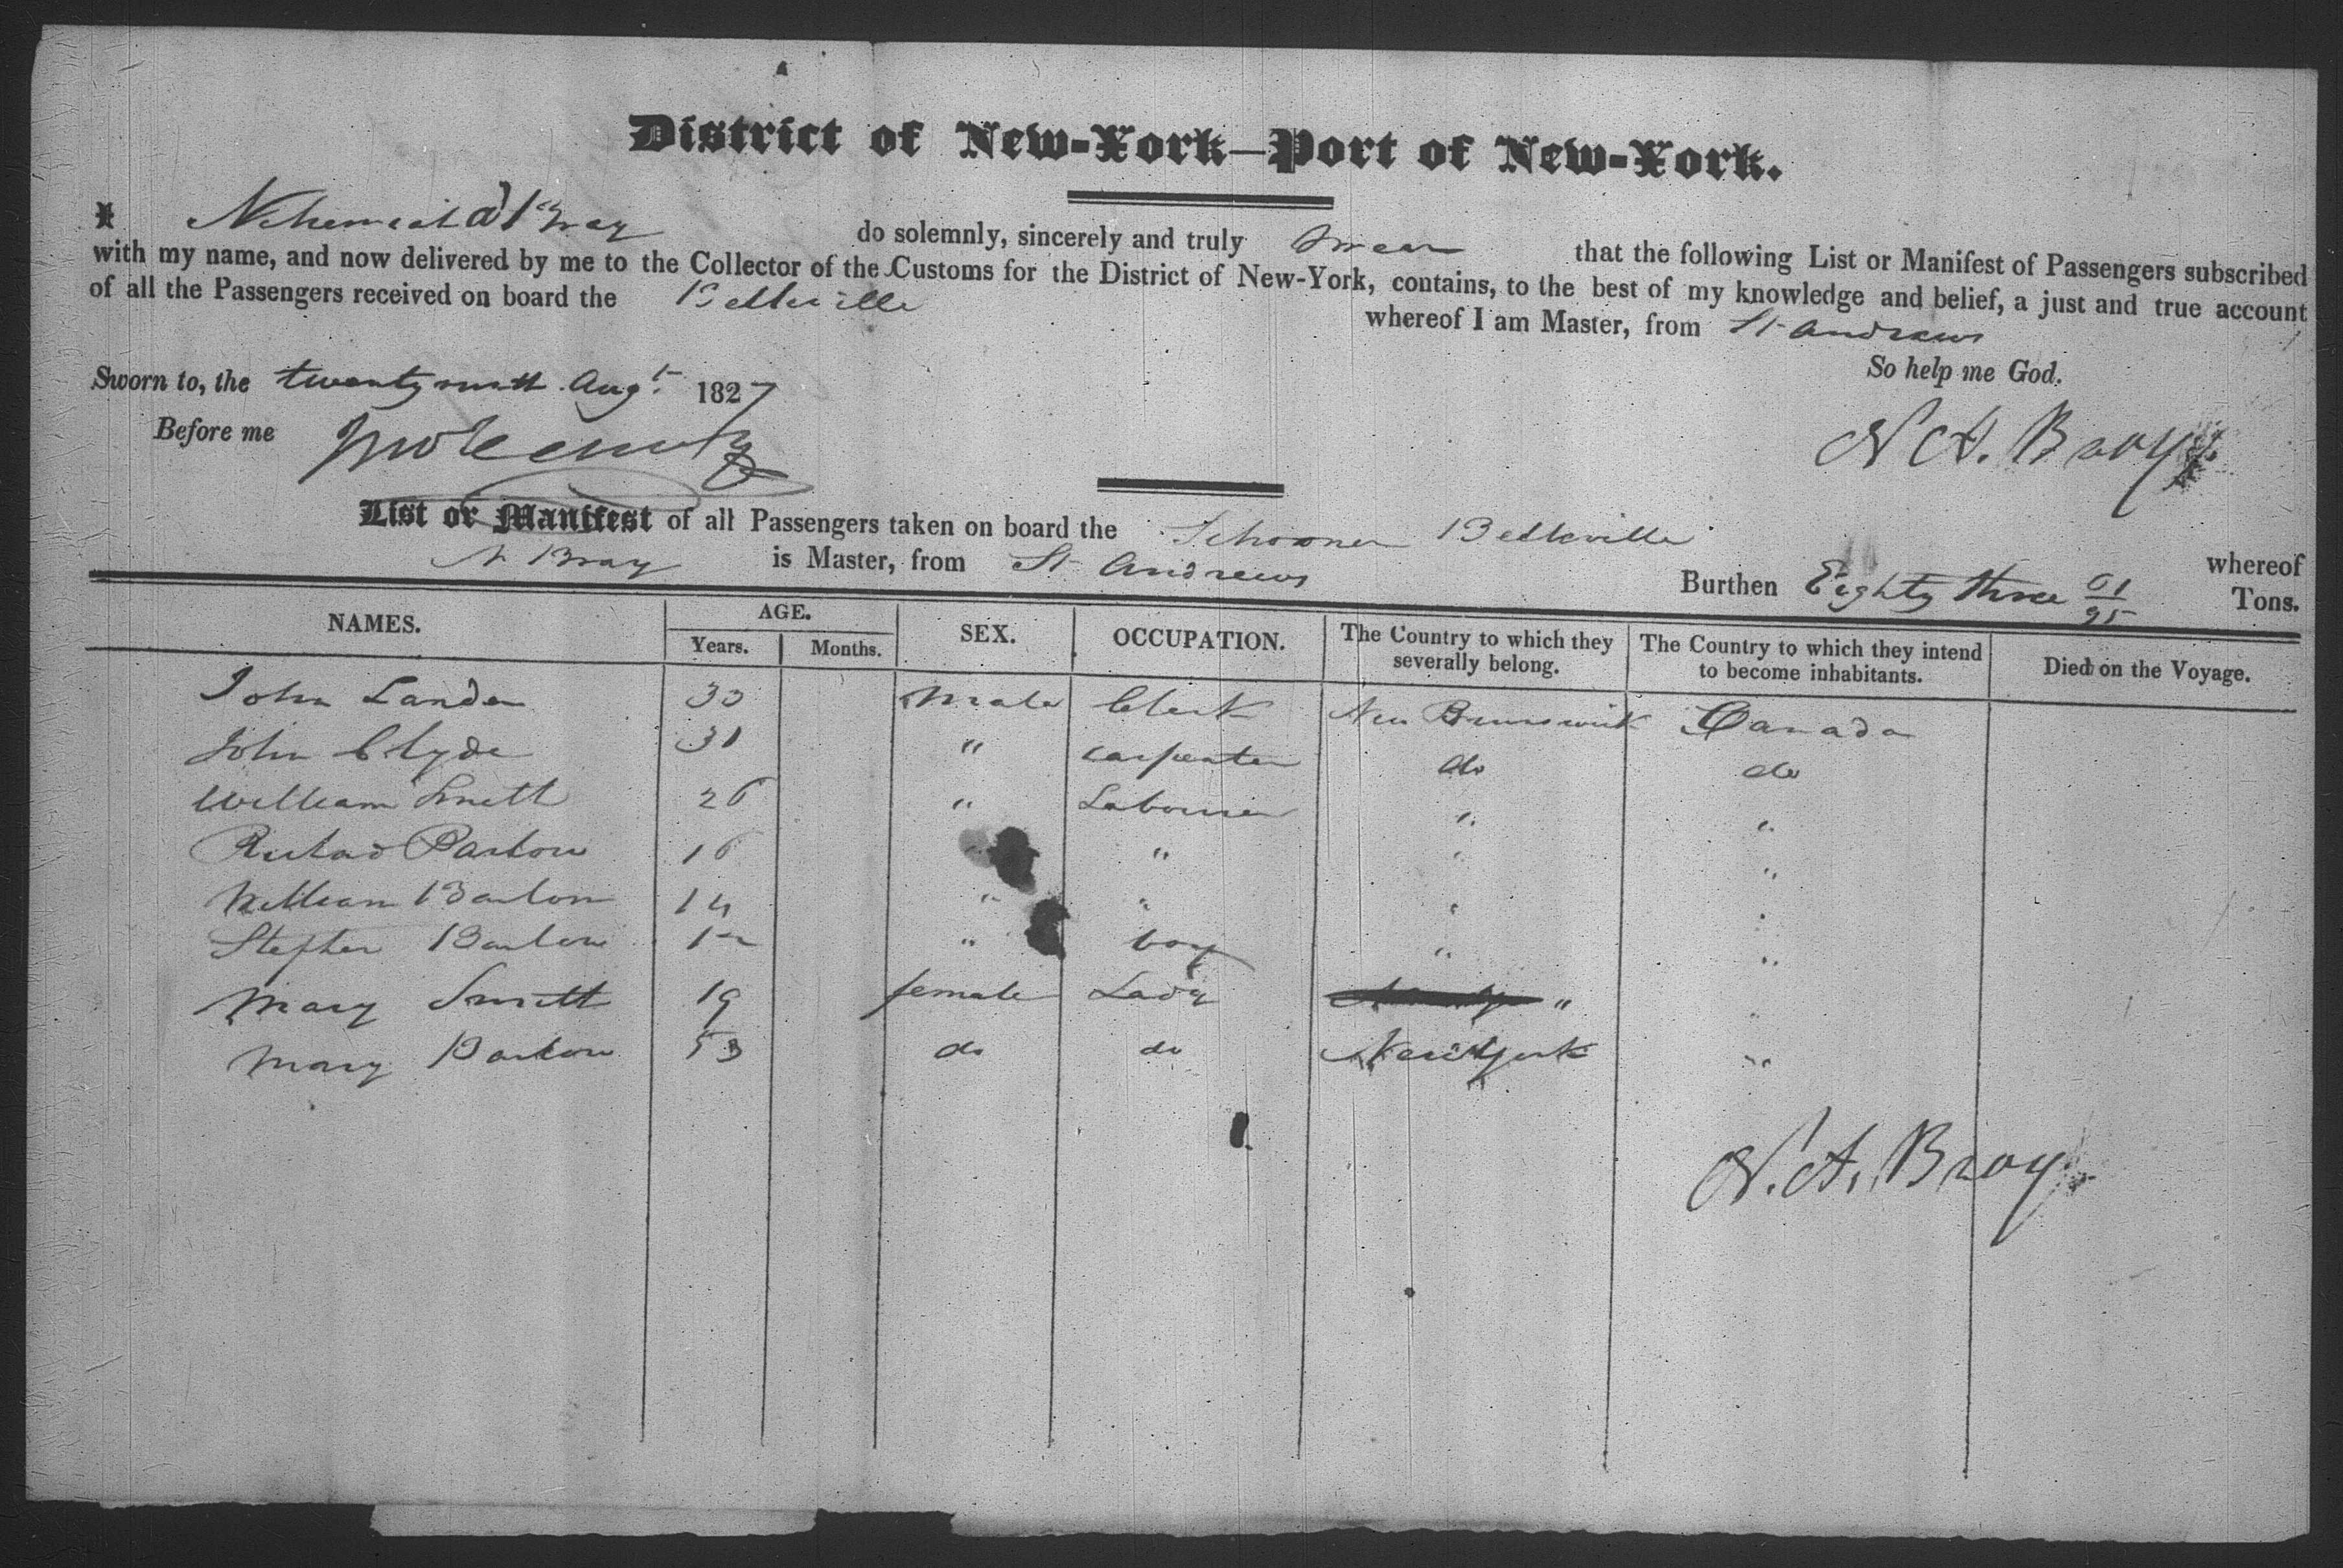 District of New-York—Port of New-York.
I Nehemiah A Bray do solemnly, sincerely and truly Swear that the following List or Manifest of Passengers subscribed
with my name, and now delivered by me to the Collector of the Customs for the District of New-York, contains, to the best of my knowledge and belief, a just and true account
of all the Passengers received on board the Belleville whereof I am Master, from St Andrews
So help me God.
Sworn to, the twenty ninth Augt 1827
Before me
N A. Bray
List or Manifest of all Passengers taken on board the Schooner Belleville whereof
N Bray is Master, from St Andrews Burthen Eighty three 01/95 Tons.
NAMES. AGE. Years. Months. SEX. OCCUPATION. The Country to which they severally belong. The Country to which they intend to become inhabitants. Died on the Voyage.
John Lander 30 Male Clerk New Brunswick Canada
John Clyde 31 " carpenter do do
William Smith 26 " Labourer " "
Richard Barlow 16 " " " "
William Barlow 14 " " " "
Stephen Barlow 12 " boy " "
Mary Smith 19 female Lady " "
Mary Barlow 53 do do New York "
N. A. Bray